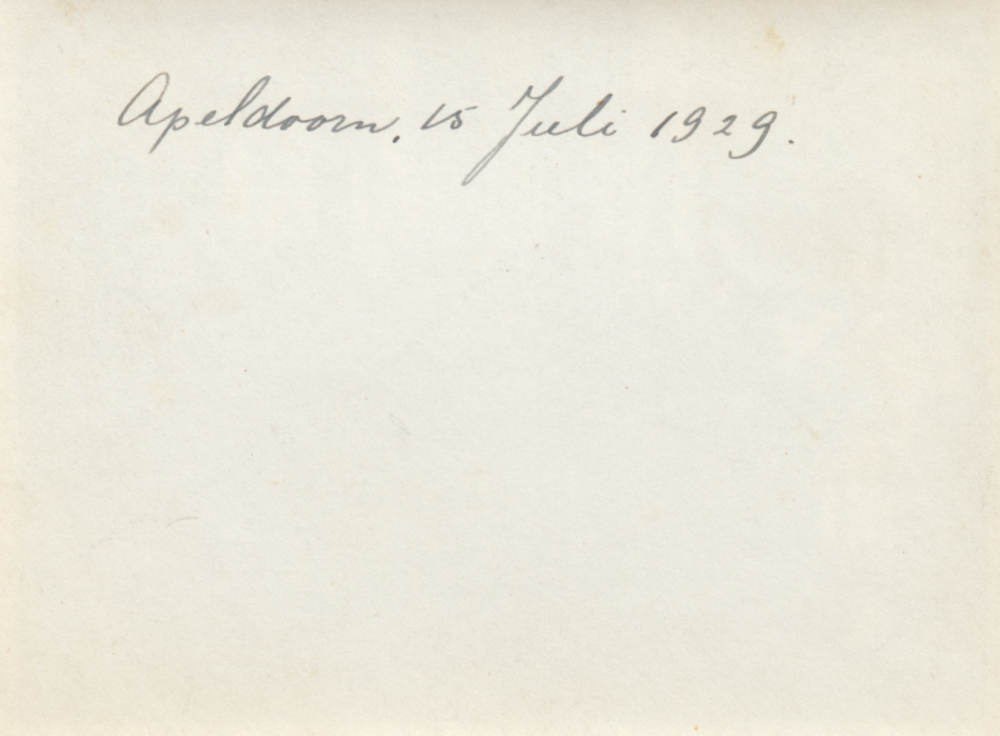 Apeldoorn, 15 Juli 1929.